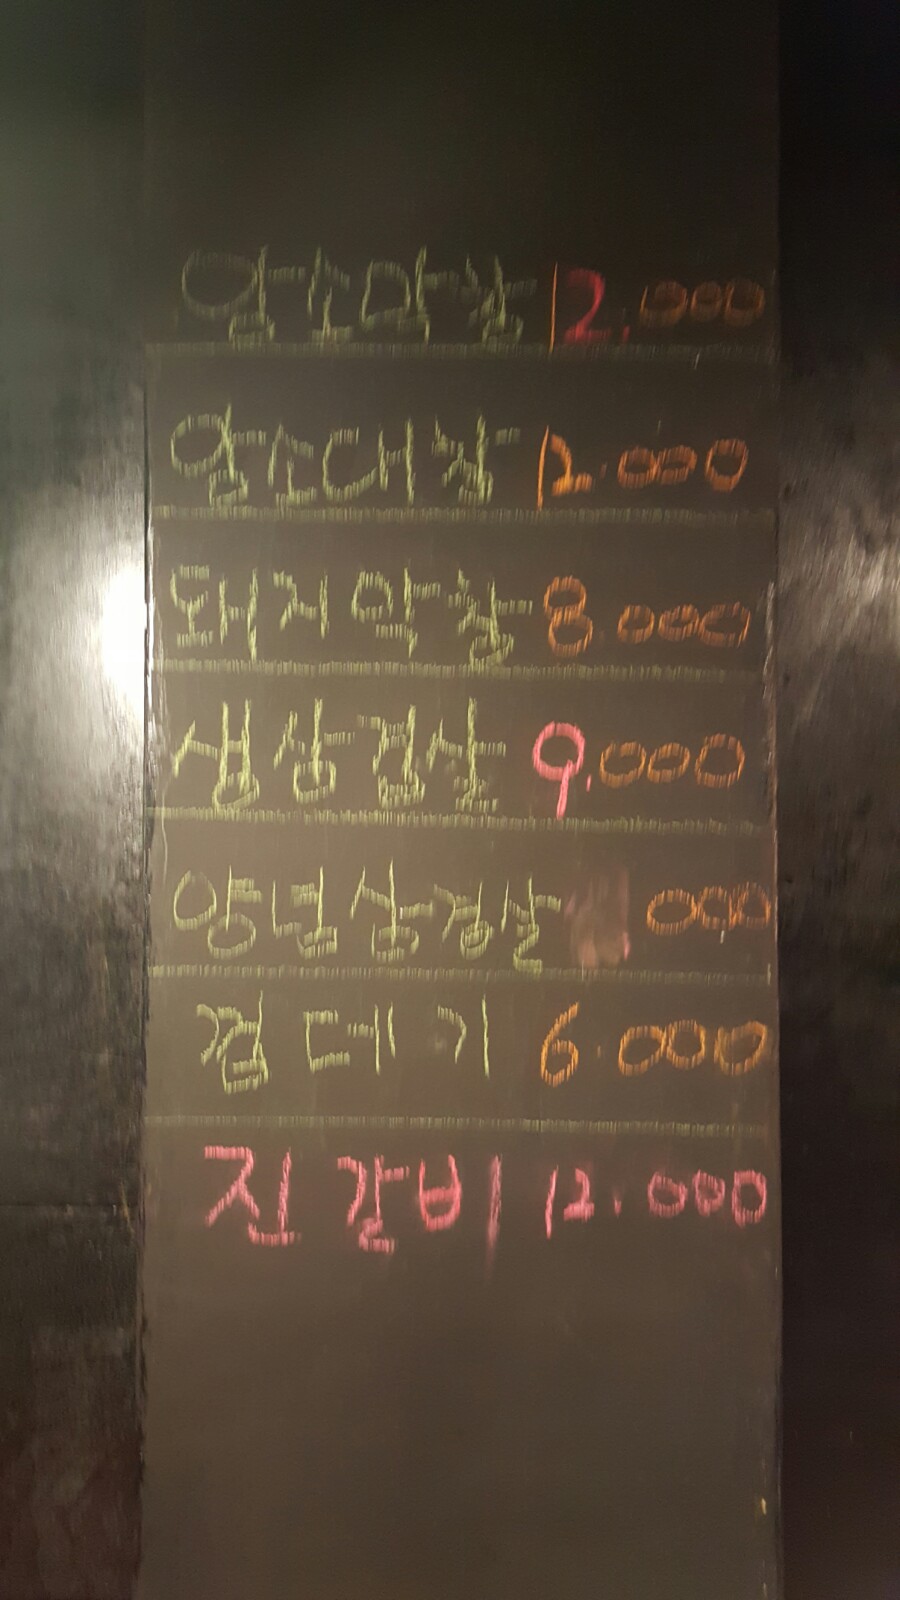 암소막창 12.000
암소대창 12.000
돼지막창 8.000
생삼겹살 9.000
양념삼겹살 000
껍데기 6.000
진갈비 12.000